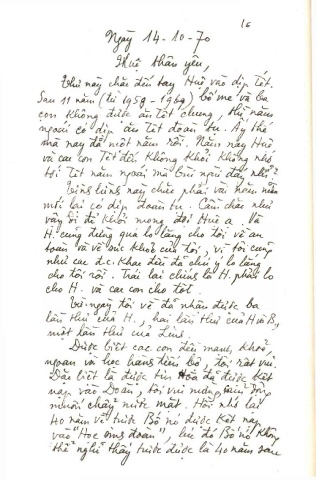 16
Ngày 14-10-70
Huệ thân yêu,
Thư này chắc đến tay Huệ vào dịp Tết.
Sau 11 năm (từ 1959-1969) bố mẹ và ba
con không được ăn tết chung, thì năm
ngoái có dịp ăn Tết đoàn tụ. Ấy thế
mà nay đã một năm rồi. Năm nay Huệ
và các con Tết đến không khỏi không nhớ
tới Tết năm ngoái mà
này chắc phải vài năm nữa
mới lại có dịp đoàn tụ. Cần chắc như
vậy để đỡ khỏi mong đợi Huệ ạ. Và
H. cũng đừng quá lo lắng cho tôi về an
toàn và về sức khỏe của tôi, vì tôi cũng
như các đ.c. khác đều đã chú ý lo lắng
cho tôi rồi. Trái lại chính là H. phải lo
cho H. và các con cho tốt.
Từ ngày tôi về đã nhận được ba
lần thư của H. hai lần thư của
một lần thư của
Được biết các con đều mạnh, khỏe,
ngoan và học hành tiến bộ, tôi rất vui.
Đặc biệt là được tin đã được kết
nạp vào Đoàn, tôi vui mừng
muốn chảy nước mắt. Hồi nhớ lại
40 năm về trước Bố nó được kết nạp
vào "Học sinh đoàn", lúc đó Bố nó không
thể nghĩ thấy trước được là 40 năm sau